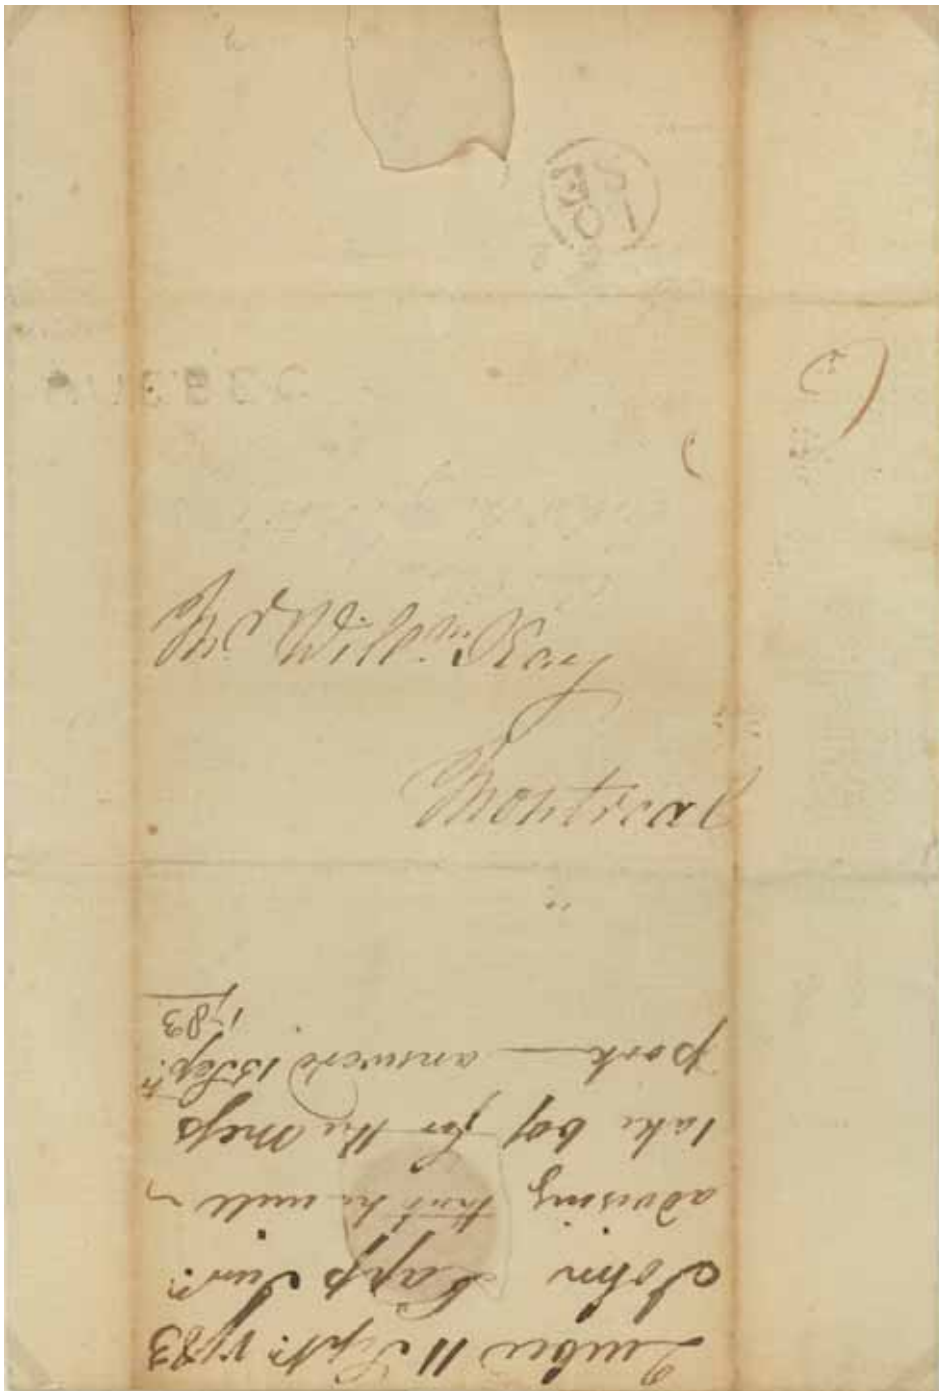 QUEBEC
Mr Willm Kay
Montreal
Quebec 11 Septr. 1783
John Junr.
advising that he will
take for the Mess
pork — answerd 15 Sepr.
1783